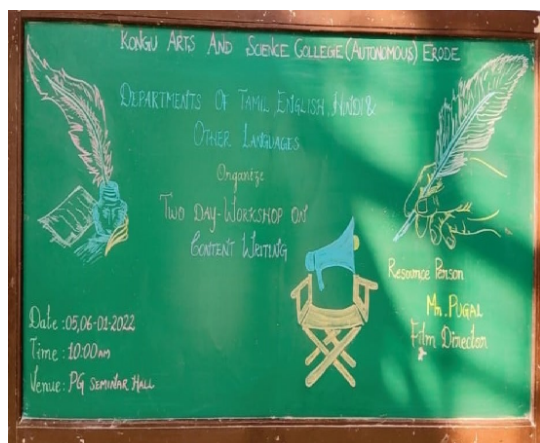 KONGU ARTS AND SCIENCE COLLEGE (AUTONOMOUS) ERODE
DEPARTMENTS OF TAMIL, ENGLISH, HINDI &
OTHER LANGUAGES
Organize
TWO DAY-WORKSHOP ON
CONTENT WRITING
Resource Person
Mr. PUGAL
Film Director
Date : 05,06-01-2022
Time : 10:00am
Venue : PG SEMINAR HALL